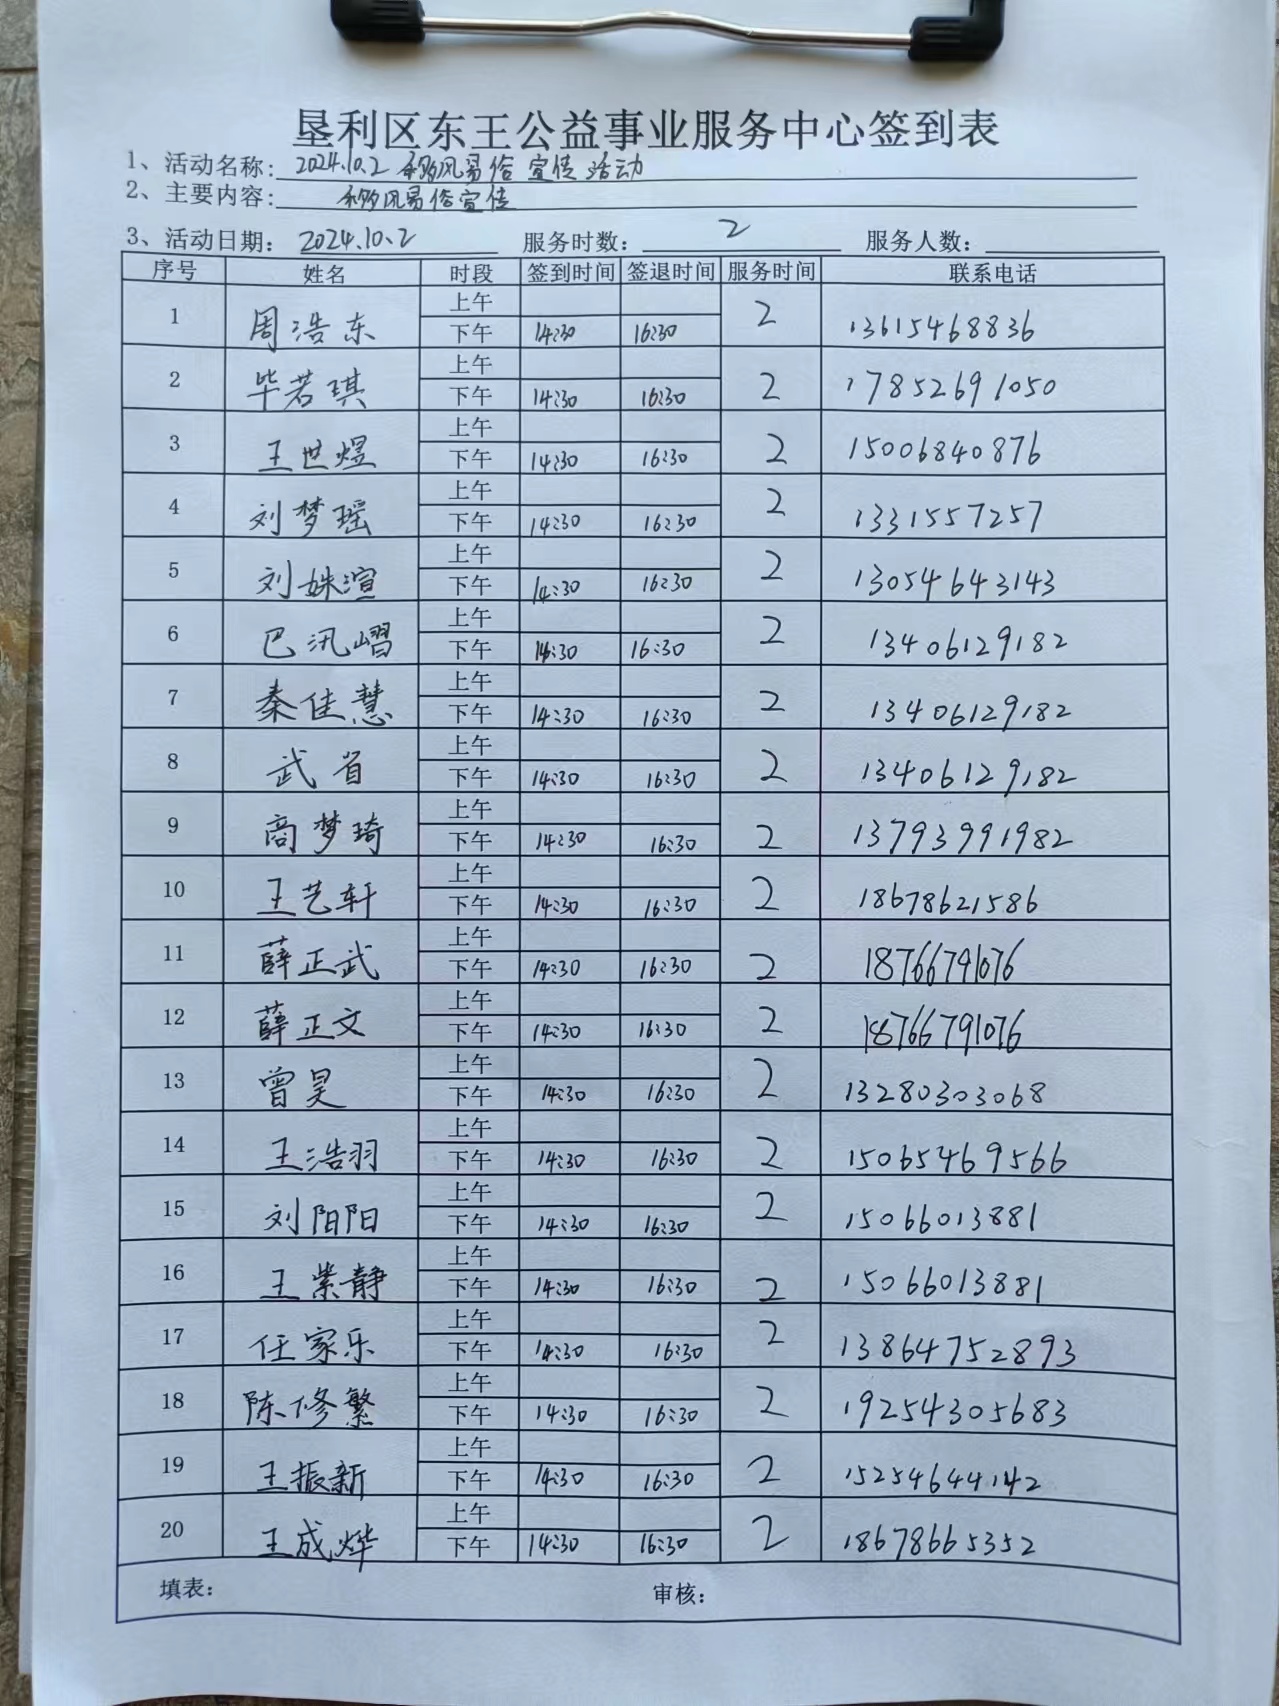 垦利区东王公益事业服务中心签到表
1、活动名称: 2024.10.2 移风易俗 宣传 活动
2、主要内容: 移风易俗宣传
3、活动日期: 2024.10.2 服务时数: 2 服务人数:
序号 姓名 时段 签到时间 签退时间 服务时间 联系电话
1 周浩东 上午 2 13615468836
下午 14:30 16:30
2 毕若琪 上午 2 17852691050
下午 14:30 16:30
3 王世煜 上午 2 15006840876
下午 14:30 16:30
4 刘梦瑶 上午 2 1331557257
下午 14:30 16:30
5 刘姝渲 上午 2 13054643143
下午 14:30 16:30
6 巴汛嶍 上午 2 13406129182
下午 14:30 16:30
7 秦佳慧 上午 2 13406129182
下午 14:30 16:30
8 武首 上午 2 13406129182
下午 14:30 16:30
9 商梦琦 上午 2 13793991982
下午 14:30 16:30
10 王艺轩 上午 2 18678621586
下午 14:30 16:30
11 薛正武 上午 2 18766791076
下午 14:30 16:30
12 薛正文 上午 2 18766791076
下午 14:30 16:30
13 曾昊 上午 2 13280303068
下午 14:30 16:30
14 王浩羽 上午 2 15065469566
下午 14:30 16:30
15 刘阳阳 上午 2 15066013881
下午 14:30 16:30
16 王紫静 上午 2 15066013881
下午 14:30 16:30
17 任家乐 上午 2 13864752893
下午 14:30 16:30
18 陈修繁 上午 2 19254305683
下午 14:30 16:30
19 王振新 上午 2 15254644142
下午 14:30 16:30
20 王成烨 上午 2 18678665352
下午 14:30 16:30
填表: 审核: